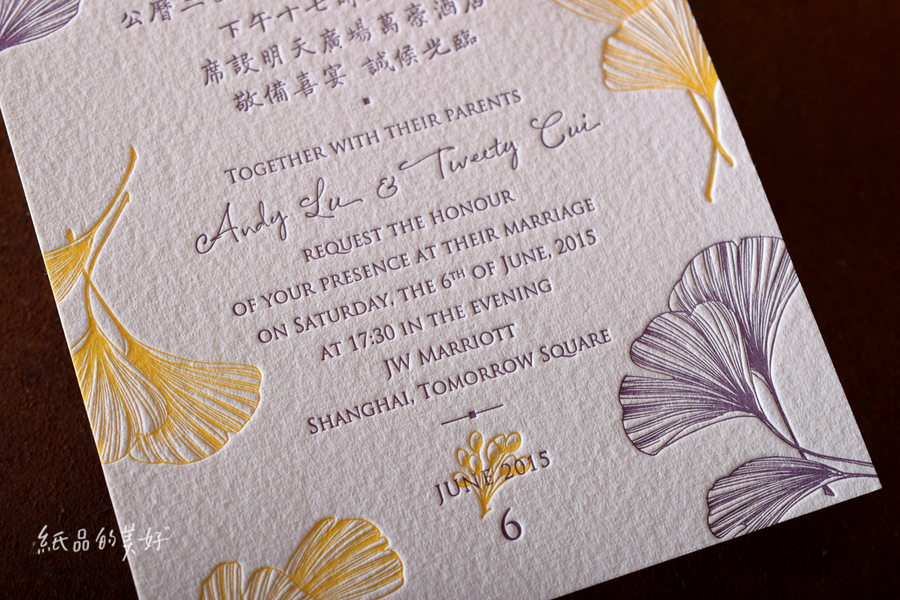 公曆二
下午十七時
席設明天廣場萬豪酒店
敬備喜宴 誠候光臨
TOGETHER WITH THEIR PARENTS
Andy Lu & Tweety Cui
REQUEST THE HONOUR
OF YOUR PRESENCE AT THEIR MARRIAGE
ON SATURDAY, THE 6TH OF JUNE, 2015
AT 17:30 IN THE EVENING
JW MARRIOTT
SHANGHAI, TOMORROW SQUARE
JUNE 2015
6
紙品的美好